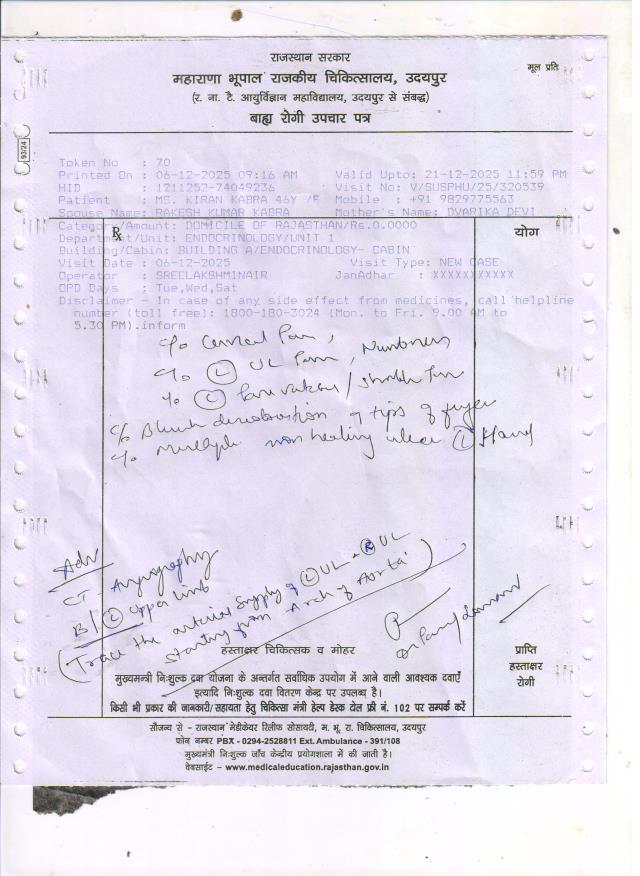 राजस्थान सरकार
मूल प्रति
महाराणा भूपाल राजकीय चिकित्सालय, उदयपुर
(र. ना. टै. आयुर्विज्ञान महाविद्यालय, उदयपुर से संबद्ध)
बाह्य रोगी उपचार पत्र
93/24
Token No : 70
Printed On : 06-12-2025 09:16 AM Valid Upto: 21-12-2025 11:59 PM
HID : 1211252-74049236 Visit No: V/SUSPHU/25/320539
Patient : MS. KIRAN KABRA 46Y /F Mobile : +91 9829775563
Spouse Name: RAKESH KUMAR KABRA Mother's Name: DVARIKA DEVI
Category/Amount: DOMICILE OF RAJASTHAN/Rs.0.0000
Rx योग
Department/Unit: ENDOCRINOLOGY/UNIT 1
Building/Cabin: BUILDING A/ENDOCRINOLOGY- CABIN
Visit Date : 06-12-2025 Visit Type: NEW CASE
Operator : SREELAKSHMINAIR JanAdhar : XXXXXXXXXXX
OPD Days : Tue,Wed,Sat
Disclaimer - In case of any side effect from medicines, call helpline
number (toll free): 1800-180-3024 (Mon. to Fri. 9.00 AM to
5.30 PM).inform
c/o Cervical Pain,
c/o (L) UL Pain, Numbness
c/o (L) /
c/o Bluish discolouration of tips of finger
c/o multiple non healing ulcer (L) Hand
Adv
CT - Angiography
B/L Upper limb
(Trace the arterial supply of (L) UL + (R) UL
starting from Arch of Aorta)
Dr
हस्ताक्षर चिकित्सक व मोहर
प्राप्ति
हस्ताक्षर
रोगी
मुख्यमन्त्री निःशुल्क दवा योजना के अन्तर्गत सर्वाधिक उपयोग में आने वाली आवश्यक दवाएँ
इत्यादि निःशुल्क दवा वितरण केन्द्र पर उपलब्ध है।
किसी भी प्रकार की जानकारी/सहायता हेतु चिकित्सा मंत्री हेल्प डेस्क टोल फ्री नं. 102 पर सम्पर्क करें
सौजन्य से - राजस्थान मेडीकेयर रिलीफ सोसायटी, म. भू. रा. चिकित्सालय, उदयपुर
फोन नम्बर PBX - 0294-2528811 Ext. Ambulance - 391/108
मुख्यमंत्री निःशुल्क जाँच केन्द्रीय प्रयोगशाला में की जाती है।
वेबसाईट - www.medicaleducation.rajasthan.gov.in